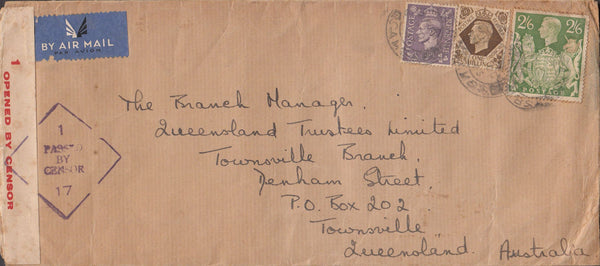 BY AIR MAIL
PAR AVION
POSTAGE REVENUE
2/6 2/6
POSTAGE
1 OPENED BY CENSOR
1
PASSED
BY
CENSOR
17
The Branch Manager.
Queensland Trustees Limited
Townsville Branch.
Denham Street.
P.O. Box 202
Townsville
Queensland. Australia